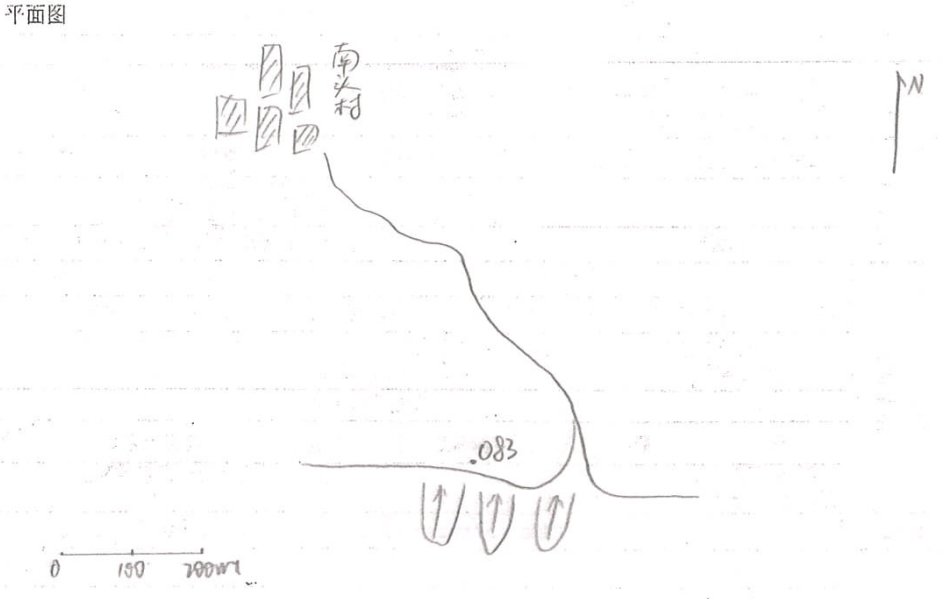 平面图
南头村
N
.083
0 100 200m